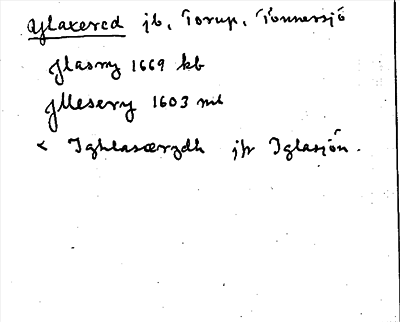 Yglaxered jb, Torup, Tönnersjö
Jlasry 1669 kb
Jllesery 1603 ml
< Ighlasærydh jfr Iglasjön.